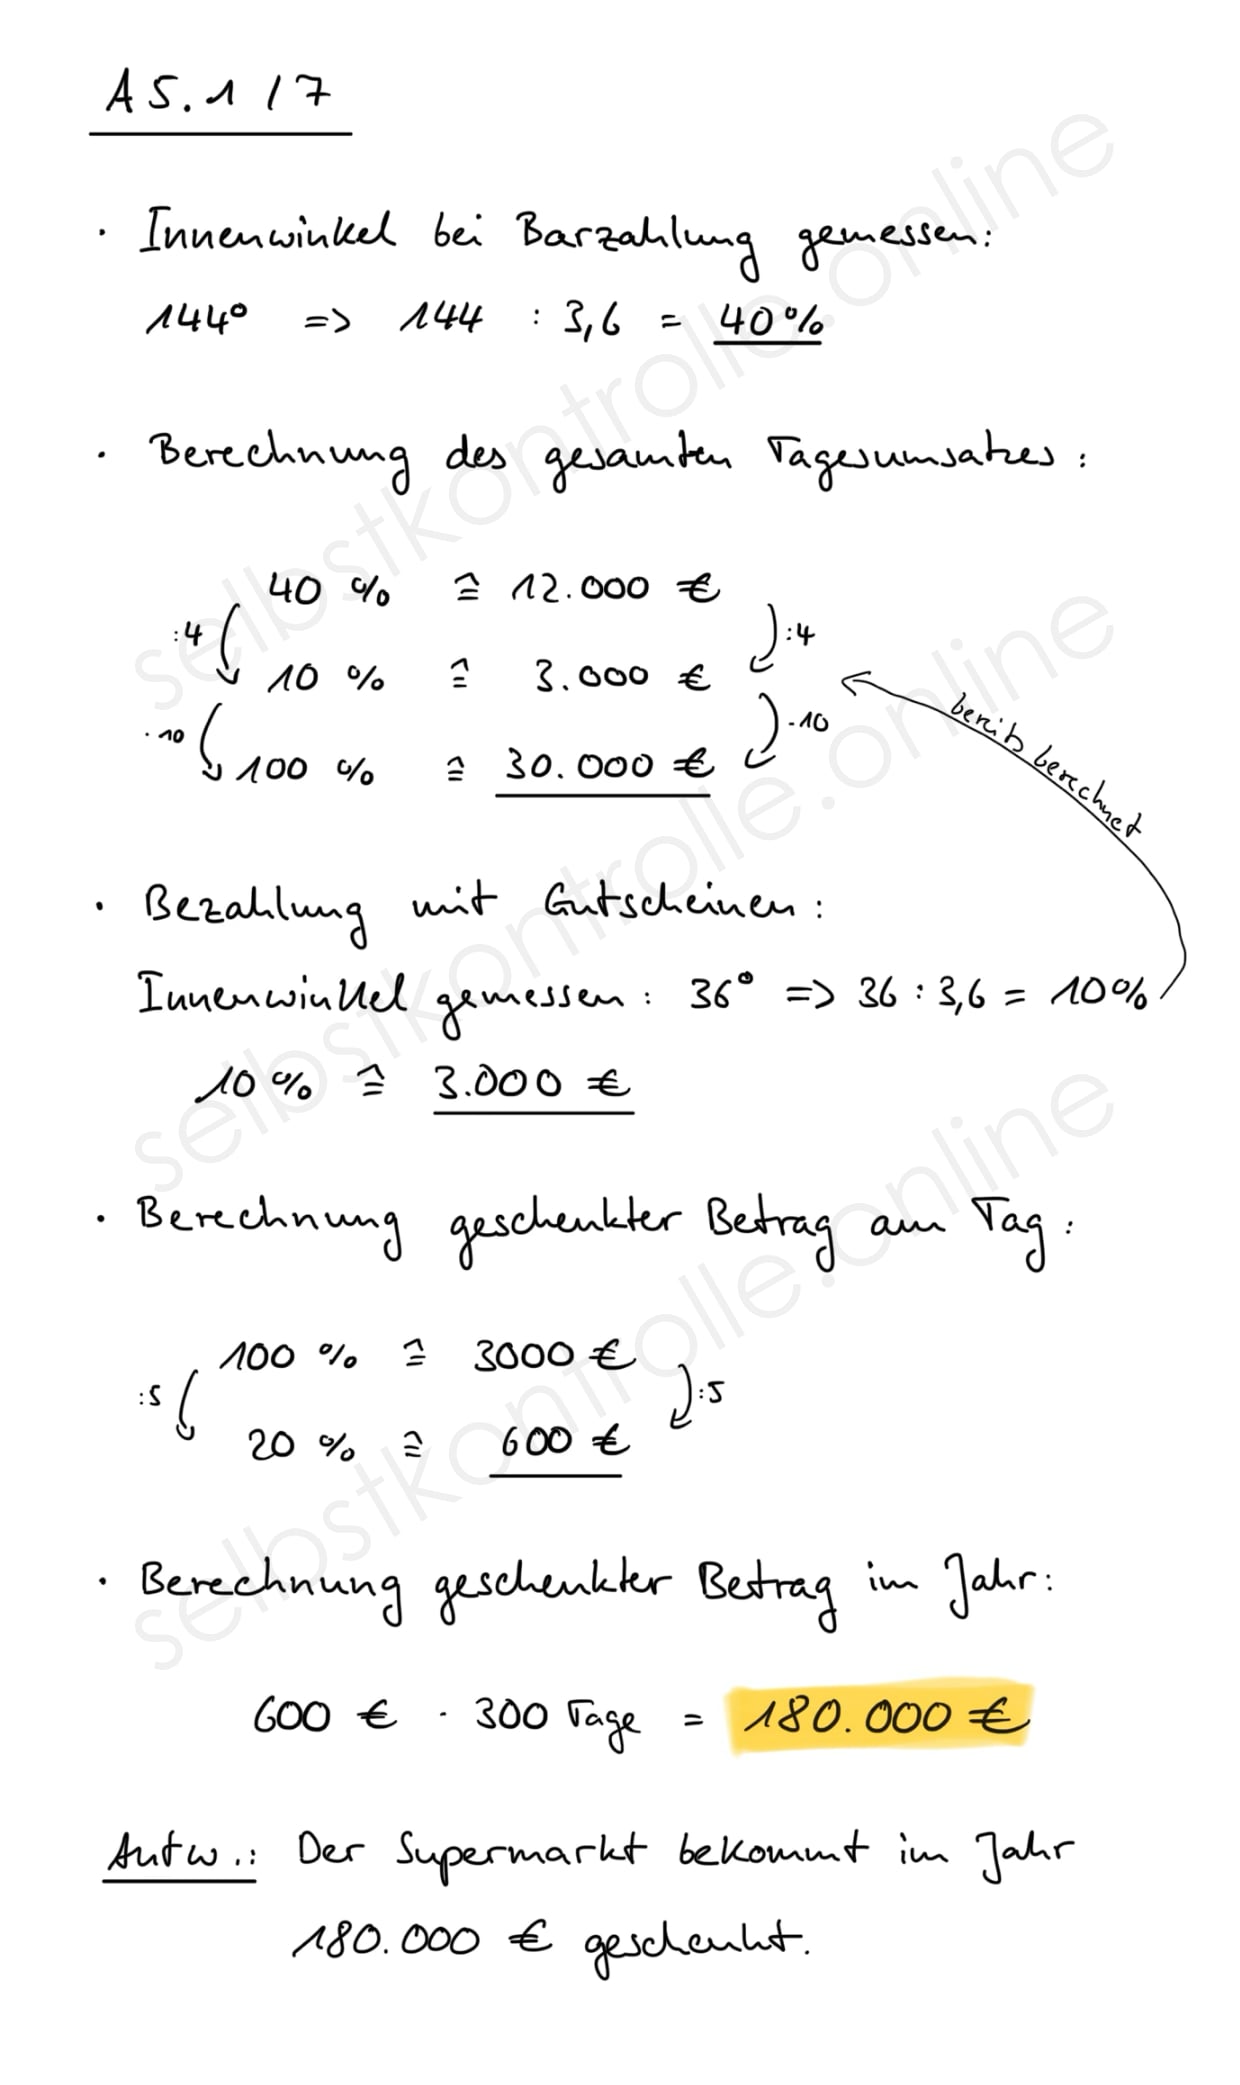 A5.1 / 7
· Innenwinkel bei Barzahlung gemessen:
144° => 144 : 3,6 = 40%
· Berechnung des gesamten Tagesumsatzes:
40 % ≙ 12.000 €
:4 :4
10 % ≙ 3.000 €
·10 ·10
100 % ≙ 30.000 €
bereits berechnet
· Bezahlung mit Gutscheinen:
Innenwinkel gemessen: 36° => 36 : 3,6 = 10%
10% ≙ 3.000 €
· Berechnung geschenkter Betrag am Tag:
100 % ≙ 3000 €
:5 :5
20 % ≙ 600 €
· Berechnung geschenkter Betrag im Jahr:
600 € · 300 Tage = 180.000 €
Antw.: Der Supermarkt bekommt im Jahr
180.000 € geschenkt.
selbstkontrolle.online
selbstkontrolle.online
selbstkontrolle.online